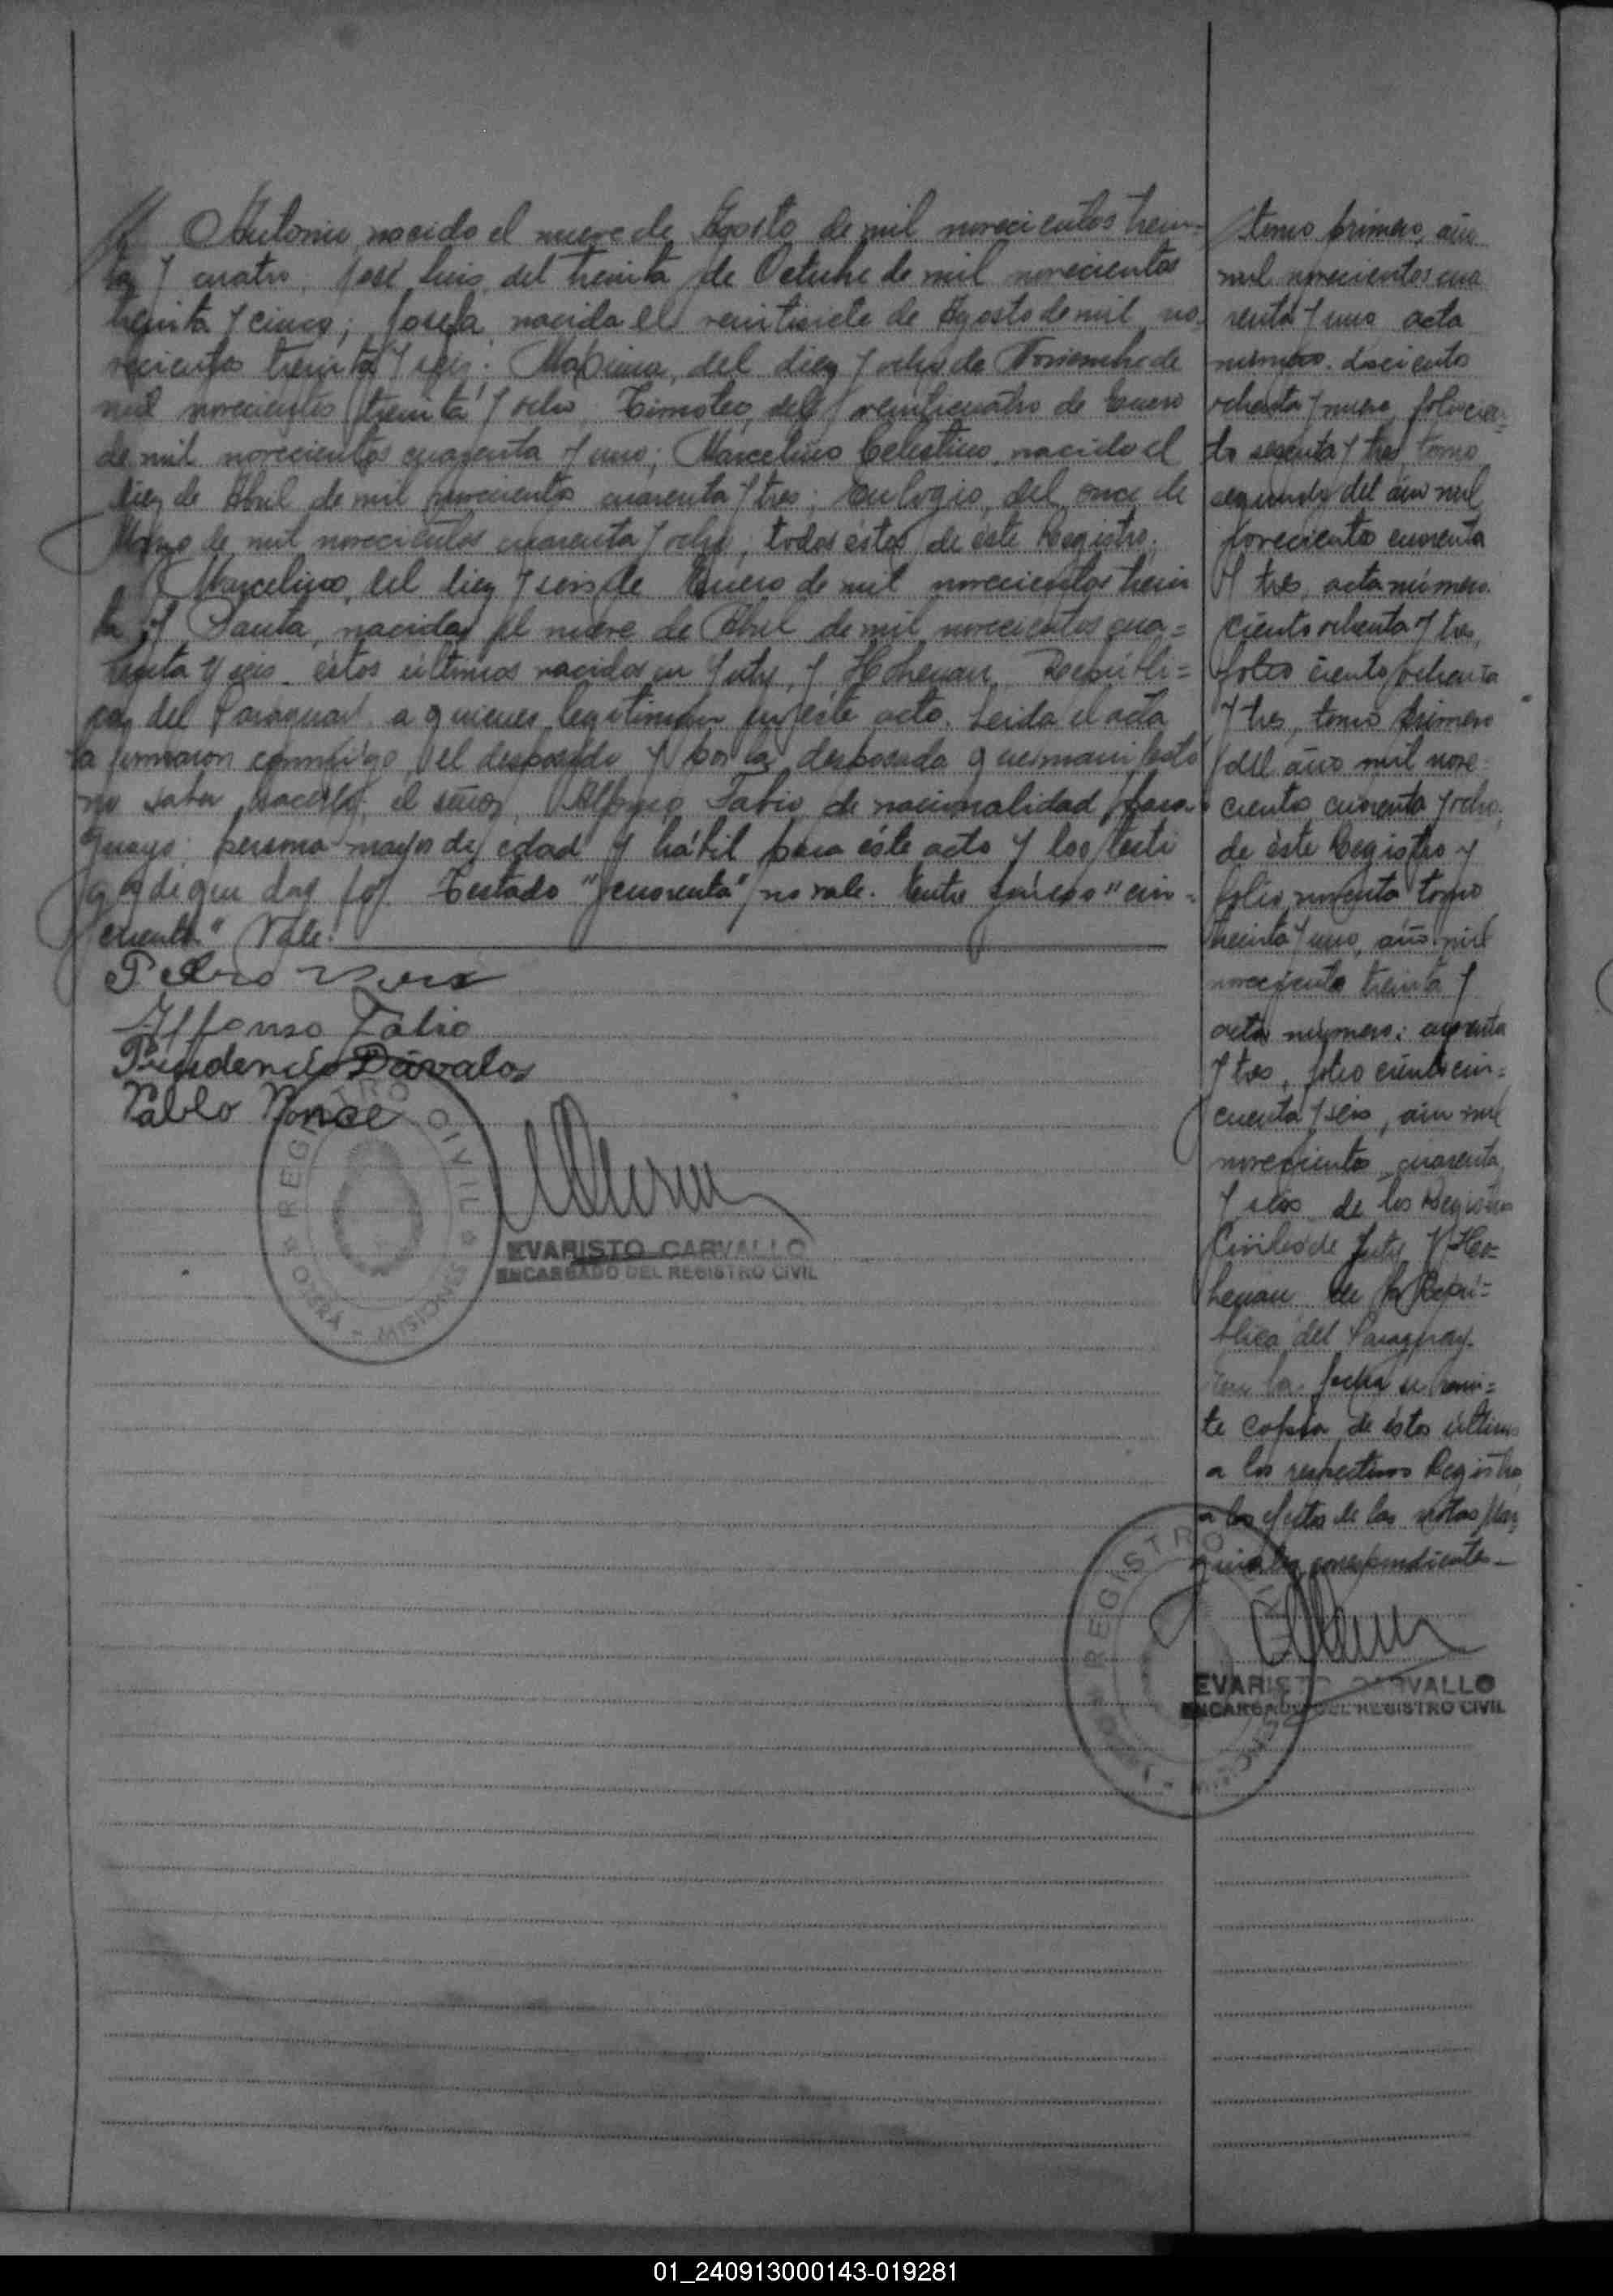 Antonio, nacido el nueve de Agosto de mil novecientos trein-
ta y cuatro, José Luis, del treinta de Octubre de mil novecientos
treinta y cinco; Josefa, nacida el veintisiete de Agosto de mil no-
vecientos treinta y seis; Maxima, del diez y ocho de Noviembre de
mil novecientos treinta y ocho, Timoteo, del veinticuatro de Enero
de mil novecientos cuarenta y uno; Marcelino Celestino, nacido el
diez de Abril de mil novecientos cuarenta y tres; Eulogio, del once de
de mil novecientos cuarenta y ocho; todos éstos de éste Registro.
Marcelino, del diez y seis de Enero de mil novecientos trein
ta y Santa, nacida el nueve de Abril de mil novecientos cua=
renta y seis éstos últimos nacidos en Yuty, y Hohenau Repúbli=
ca del Paraguay a quienes legitiman en éste acto. Leida el acta
la firmaron conmigo, el desposado y por la desposada que manifestó
no saber hacerlo, el señor Alfonso Fabio, de nacionalidad para-
guayo, persona mayor de edad y hábil para éste acto y los testi
gos de que doy fé. Testado "cuarenta" no vale. Entre líneas "cin-
cuenta" Vale.
Pedro
Alfonso Fabio
Prudencio Dávalos
Pablo Ponce
REGISTRO CIVIL
OBERA - MISIONES
EVARISTO CARVALLO
ENCARGADO DEL REGISTRO CIVIL
tomo primero, año
mil novecientos cua
renta y uno acta
número docientos
ochenta y nueve, folio cien-
to sesenta y tres, tomo
segundo del año mil
novecientos cuarenta
y tres, acta número:
ciento ochenta y tres,
folio ciento ochenta
y tres, tomo primero
del año mil nove-
cientos cuarenta y ocho,
de éste Registro y
folio noventa tomo
treinta y uno, año mil
novecientos treinta y
acta número: cuarenta
y tres, folio ciento cin=
cuenta y seis, año mil
novecientos cuarenta
y seis de los Registros
Civiles de Yuty y Ho=
henau de la Repú=
blica del Paraguay.
la fecha se remi=
te copia de éstos últimos
a los respectivos Registros
a los efectos de las notas mar
ginales correspondientes-
REGISTRO
EVARISTO CARVALLO
ENCARGADO DEL REGISTRO CIVIL
01_240913000143-019281